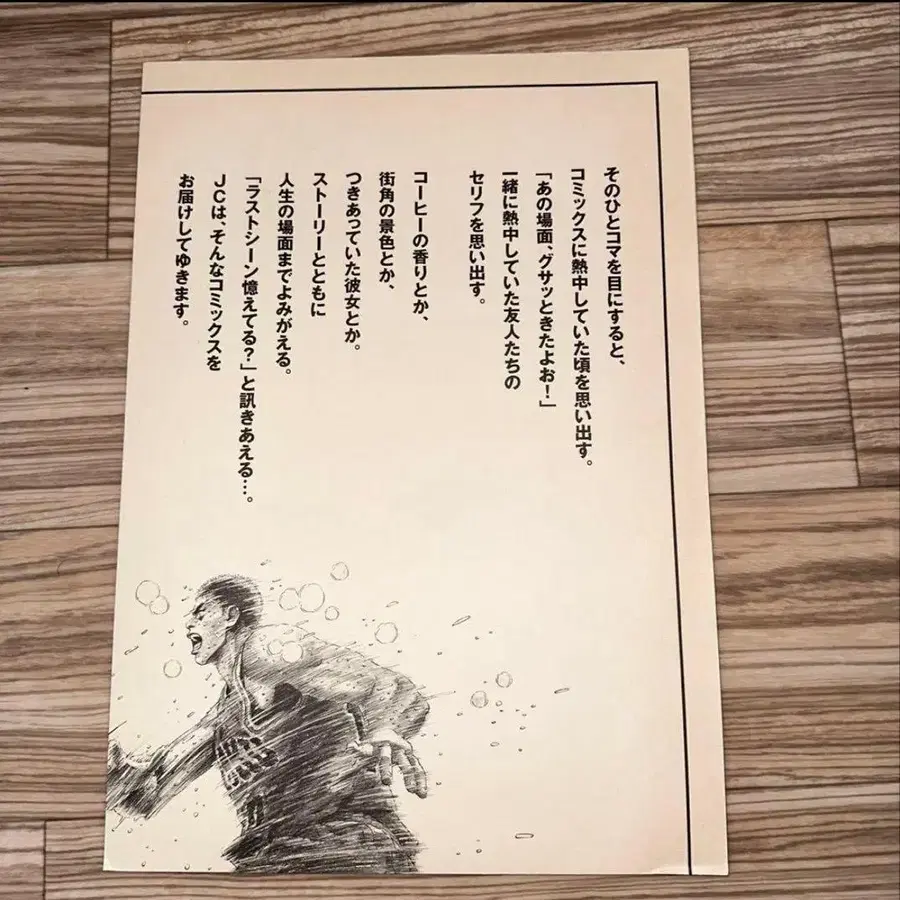 そのひとコマを目にすると、
コミックスに熱中していた頃を思い出す。
「あの場面、グサッときたよお!」
一緒に熱中していた友人たちの
セリフを思い出す。
コーヒーの香りとか、
街角の景色とか、
つきあっていた彼女とか。
ストーリーとともに
人生の場面までよみがえる。
「ラストシーン憶えてる?」と訊きあえる…。
JCは、そんなコミックスを
お届けしてゆきます。